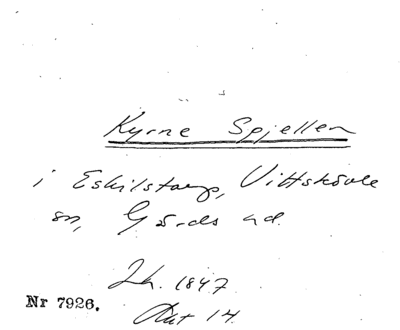 Kyrne Spjellen
i Eskilstorp, Vittskövle
sn, Gärds hd.
Lh. 1847
Nr 7926.
Akt 14.